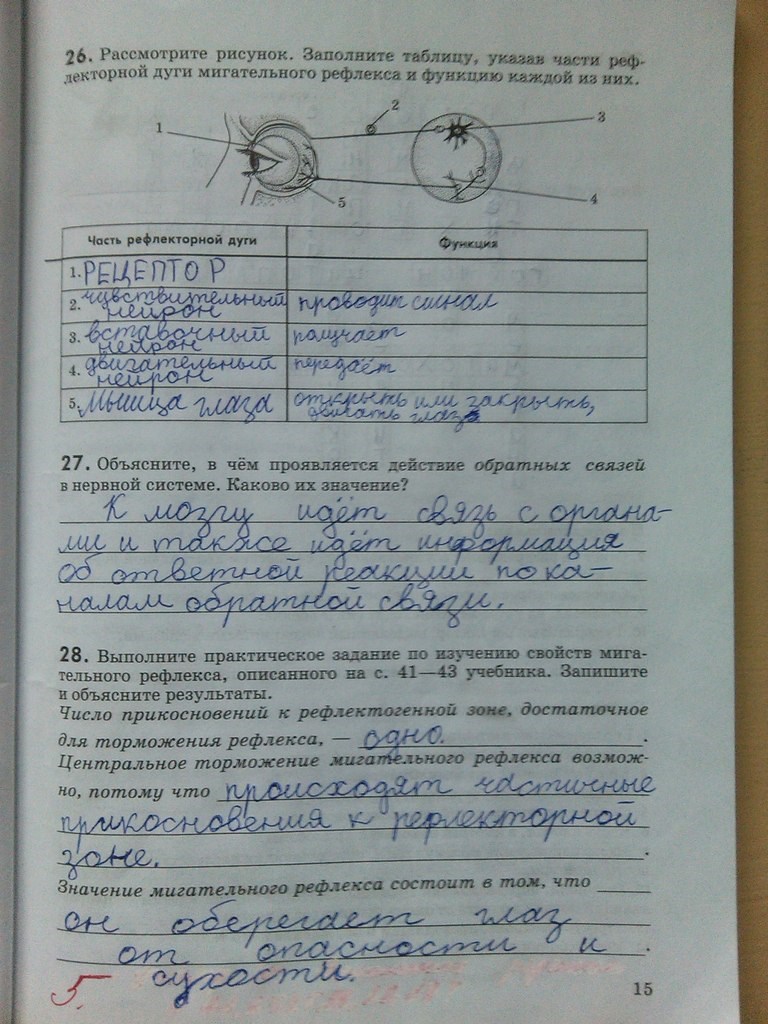 26. Рассмотрите рисунок. Заполните таблицу, указав части реф-
лекторной дуги мигательного рефлекса и функцию каждой из них.
1
2
3
4
5
Часть рефлекторной дуги Функция
1. РЕЦЕПТОР
2. чувствительный нейрон проводит сигнал
3. вставочный нейрон получает
4. двигательный нейрон передаёт
5. Мышца глаза открыть или закрыть,
двигать глаз
27. Объясните, в чём проявляется действие обратных связей
в нервной системе. Каково их значение?
К мозгу идёт связь с органа-
ми и также идёт информация
об ответной реакции по ка-
налам обратной связи.
28. Выполните практическое задание по изучению свойств мига-
тельного рефлекса, описанного на с. 41—43 учебника. Запишите
и объясните результаты.
Число прикосновений к рефлектогенной зоне, достаточное
для торможения рефлекса, — одно.
Центральное торможение мигательного рефлекса возмож-
но, потому что происходят частичные
прикосновения к рефлекторной
зоне.
Значение мигательного рефлекса состоит в том, что
он оберегает глаз
от опасности и
сухости.
5.
15